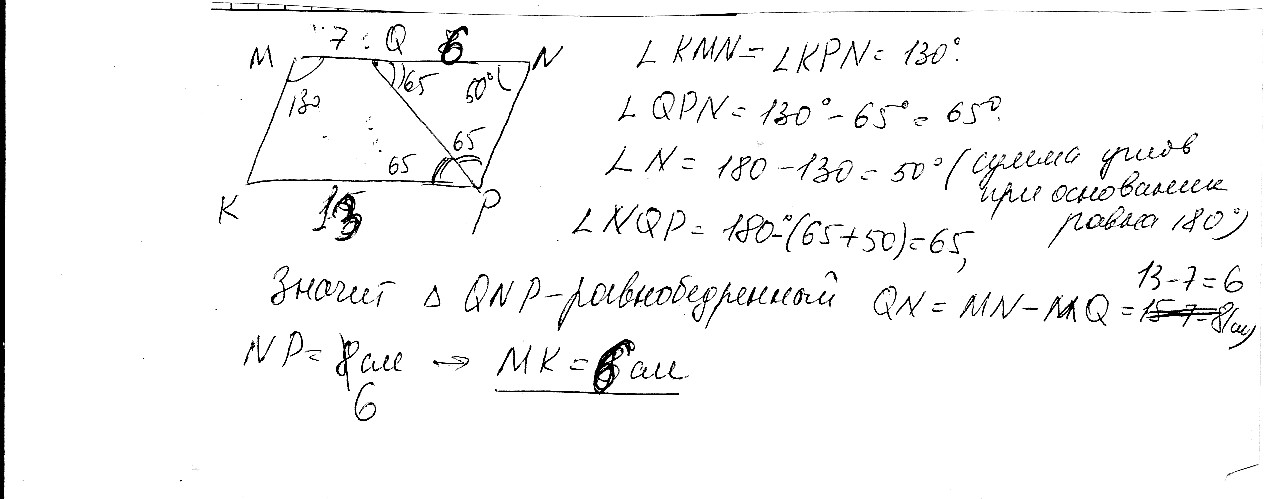 M 7 Q 6 N
130 65 50°
65 65
K 13 P
∠KMN = ∠KPN = 130°.
∠QPN = 130° - 65° = 65°.
∠N = 180 - 130 = 50° (сумма углов
при основании
равна 180°)
∠NQP = 180° - (65 + 50) = 65,
Значит △ QNP - равнобедренный QN = MN - MQ = 15-7=8(см)
13 - 7 = 6
NP = 8 см → MK = 6 см
6